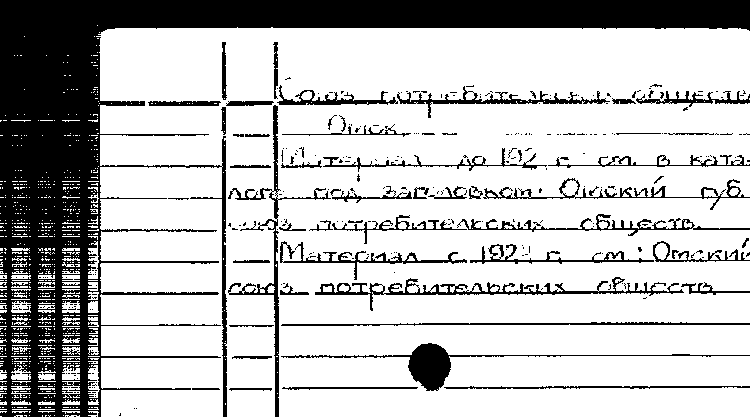 Союз потребительских обществ
Омск.
Материал до 192 г. см. в ката-
логе под заголовком: Омский губ.
союз потребительских обществ.
Материал с 192 г. см: Омский
союз потребительских обществ.